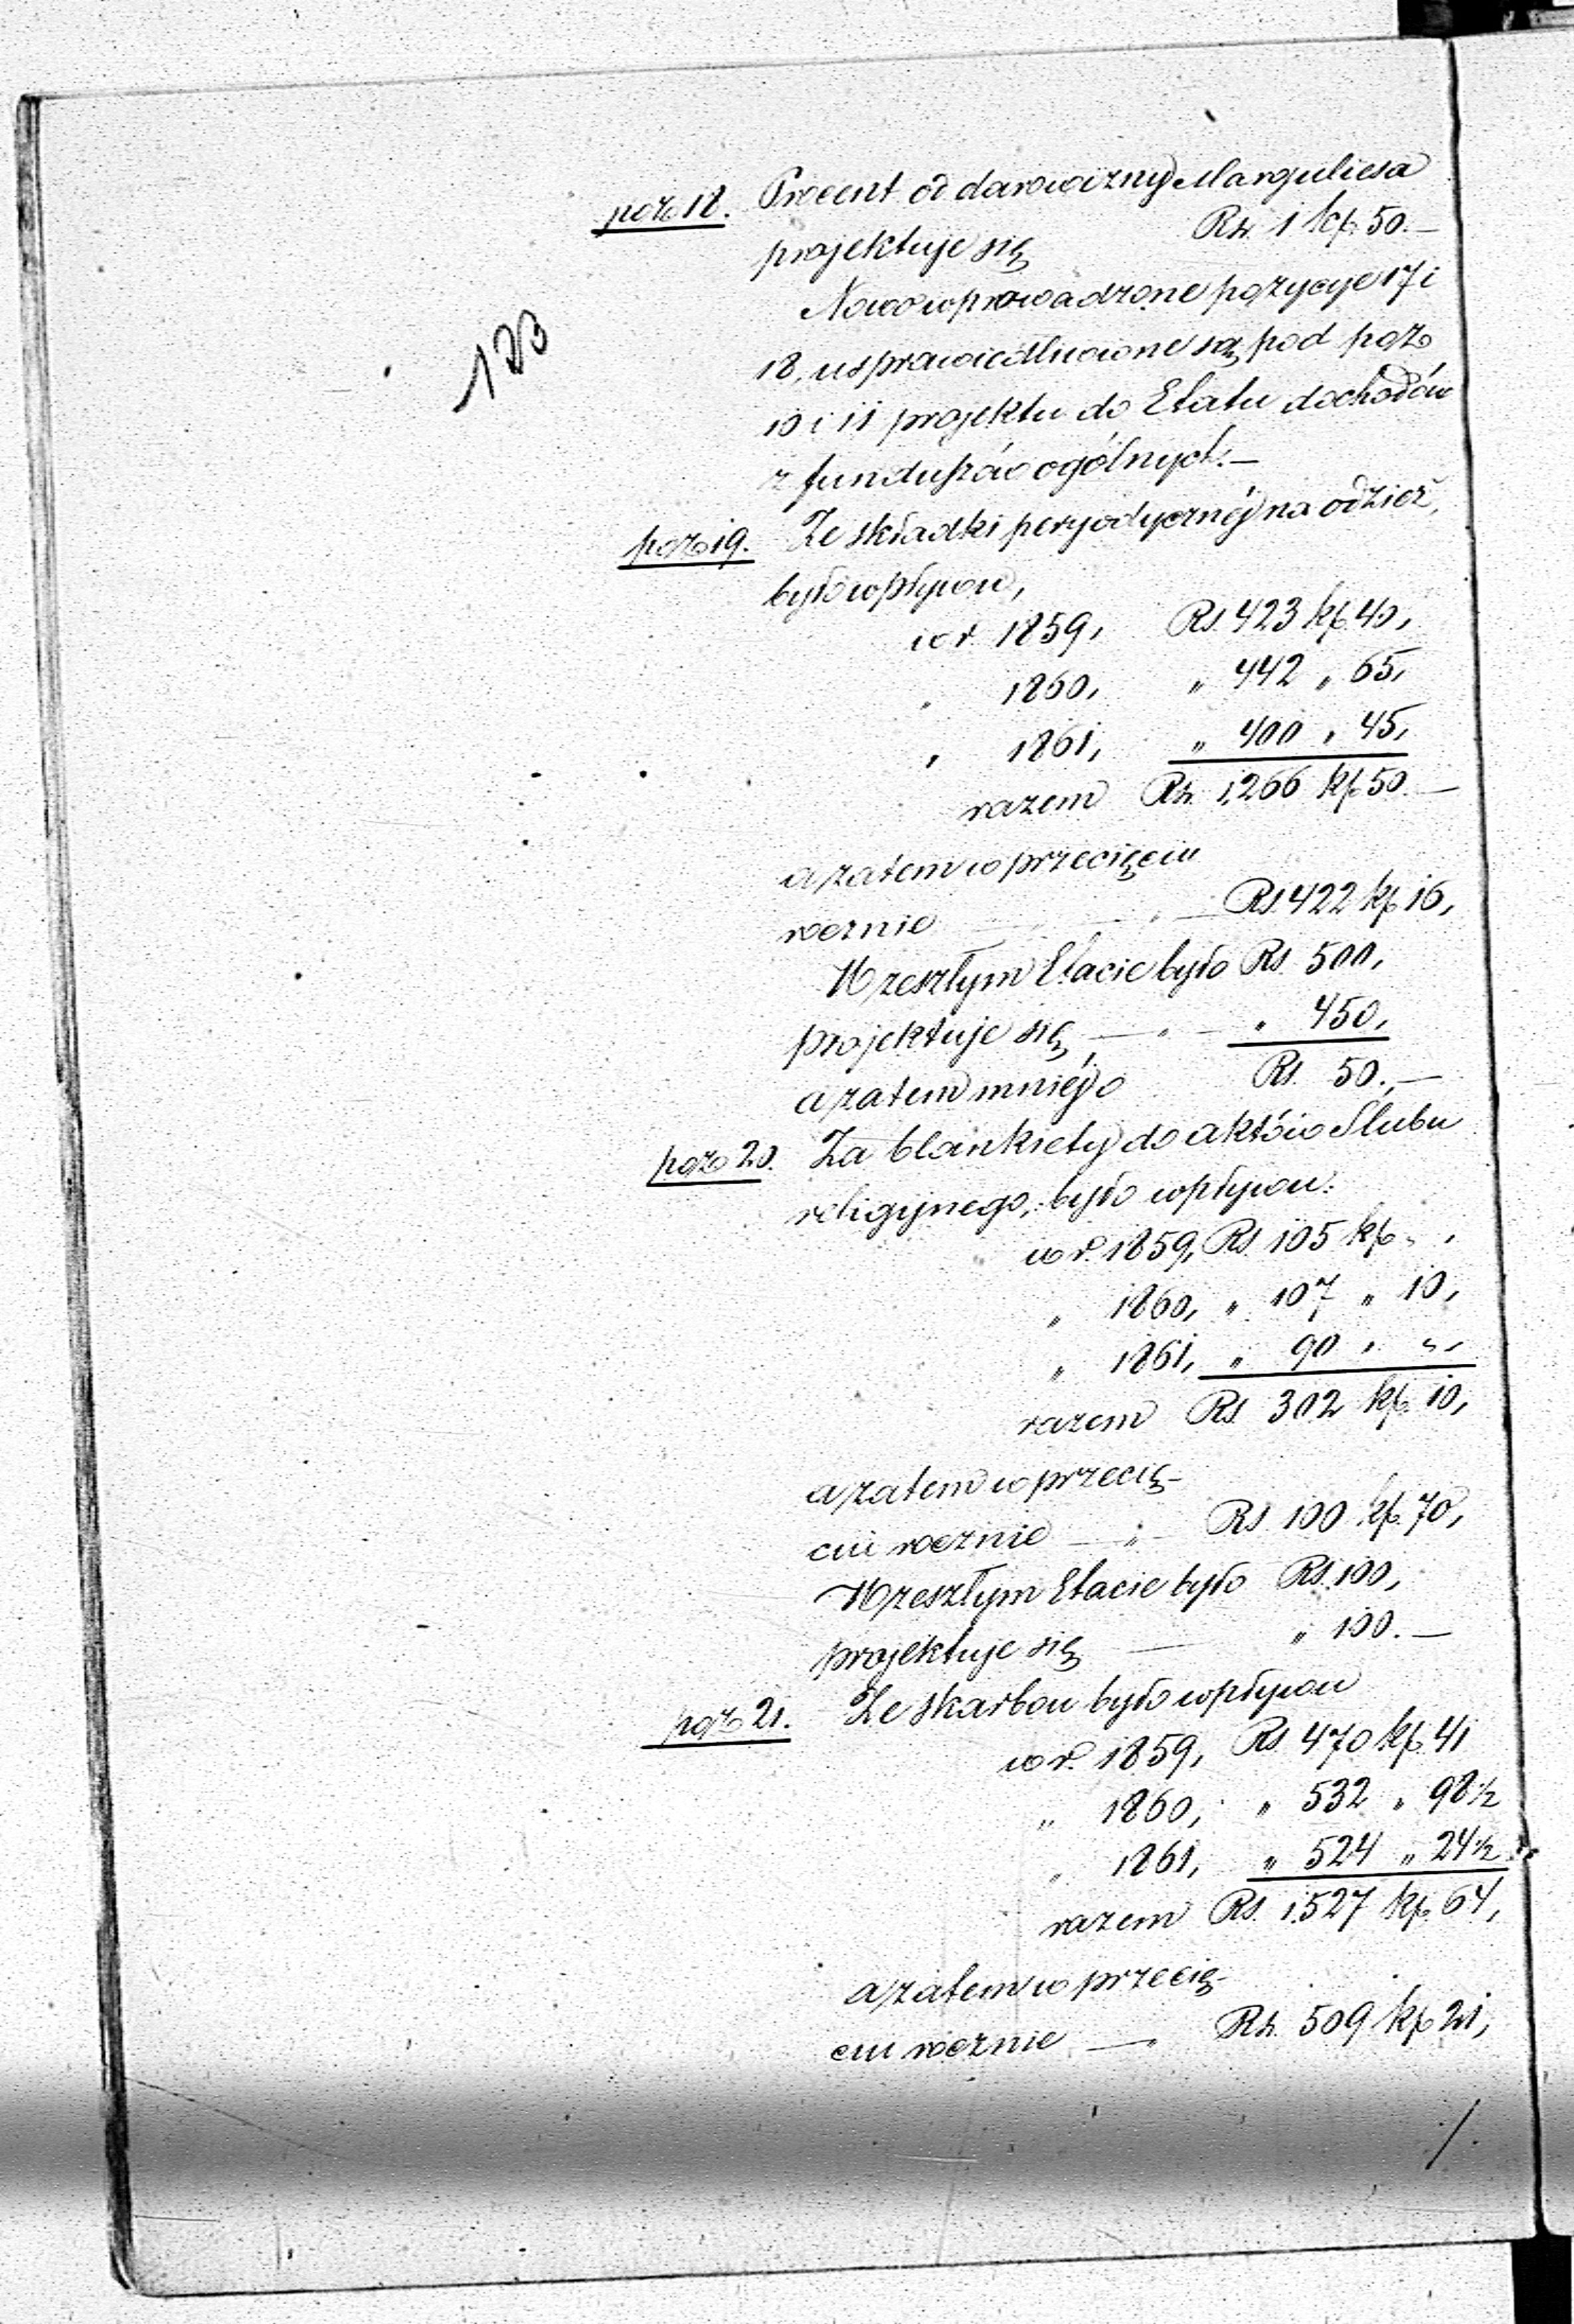 poz 18. Procent od darowizny Marguliesa
projektuje się Rs. 1 kp. 50.—
Nowo wprowadzone pozycye 17 i
18, usprawiedliwione są pod poz
10 i 11 projektu do Etatu dochodów
z funduszów ogólnych.—
123
poz 19. Ze składki peryodycznéj na odzież,
było wpływu,
w r. 1859, Rs. 423 kp. 40,
" 1860, " 442 " 65,
" 1861, " 400 " 45,
razem Rs. 1,266 kp. 50.—
a zatem w przecięciu
rocznie — " — Rs. 422 kp. 16,
W zeszłym Etacie było Rs. 500,
projektuje się — " — " 450,
a zatem mniéj o Rs. 50.,—
poz 20. Za blankiety do aktów Slubu
religijnego, było wpływu:
w r. 1859, Rs. 105 kp. " .
" 1860, " 107 " 10,
" 1861, " 90 " ",
razem Rs. 302 kp. 10,
a zatem w przecię-
ciu rocznie — " — Rs. 100 kp. 70,
W zeszłym Etacie było Rs. 100,
projektuje się — " 100.—
poz 21. Ze skarbon było wpływu
w r. 1859, Rs. 470 kp. 41
" 1860, " 532 " 98½
" 1861, " 524 " 24½
razem Rs. 1.527 kp. 64,
a zatem w przecię-
ciu rocznie — " Rs. 509 kp. 21,
./.